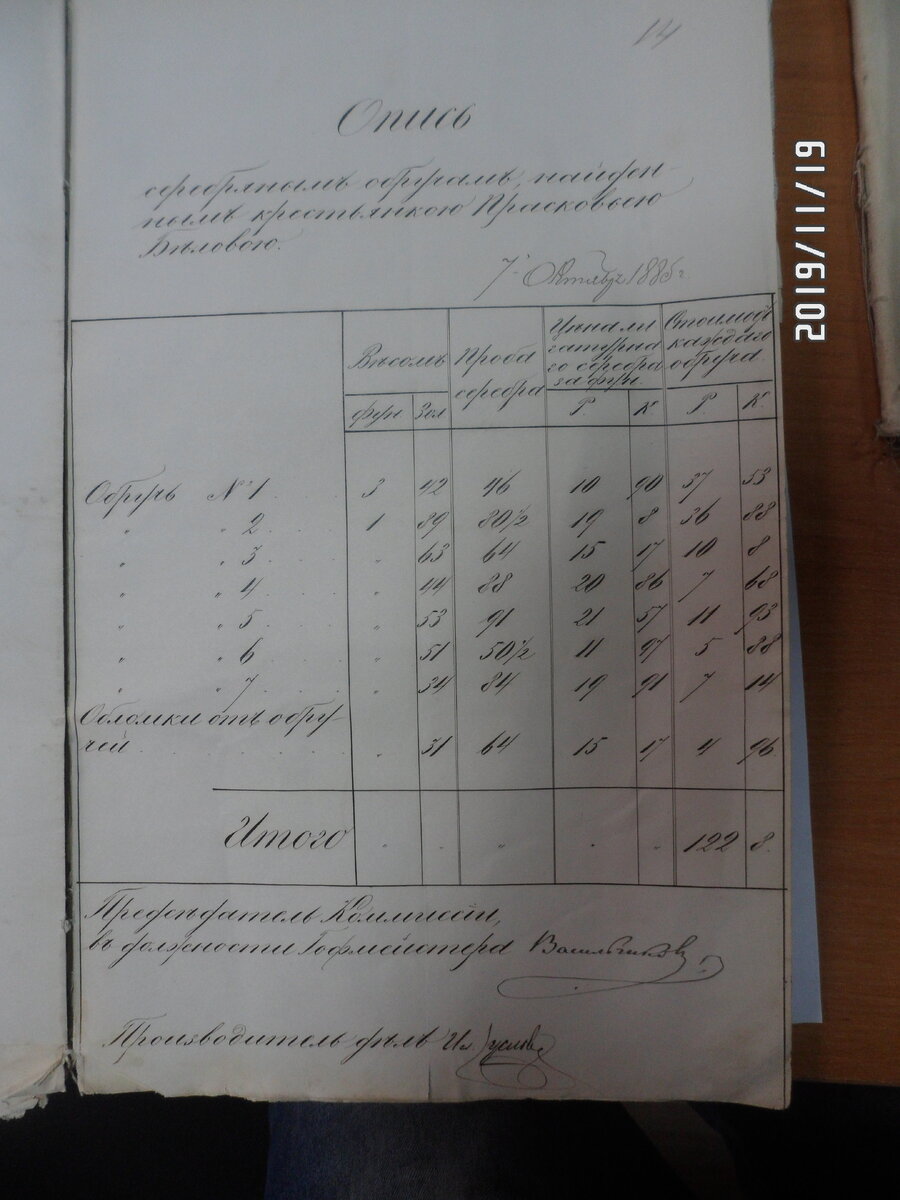 14
Опись
серебрянымъ обручамъ, найден-
нымъ крестьянкою Прасковьею
Бѣловою.
7 Октября 1885 г.
Вѣсомъ Проба серебра Цѣна ли гатурна го серебра за фун. Стоимость каждаго обруча
фун. Зол Р К Р. К.
Обручь №1 3 42 46 10 90 37 53
" " 2 1 89 80½ 19 8 36 88
" " 3 " 63 64 15 17 10 8
" " 4 " 44 88 20 86 7 68
" " 5 " 53 91 21 57 11 93
" " 6 " 51 50½ 11 97 5 88
" " 7 " 34 84 19 91 7 14
Обломки отъ обру-
чей " 31 64 15 17 4 96
Итого " " " " " 122 8.
Предсѣдатель Коммиссіи,
въ должности Гофмейстера Васильчиковъ
Производитель дѣлъ Ил.
2019/11/19